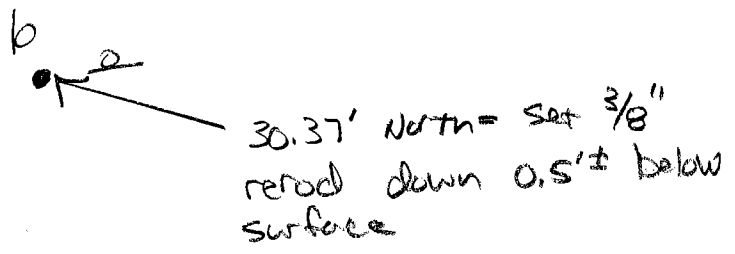 b
30.37' North = set 3/8"
rerod down 0.5'± below
surface